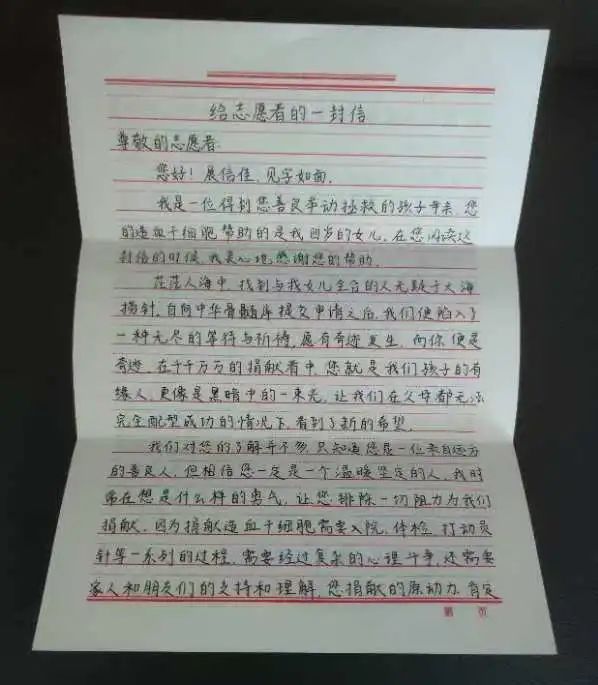 给志愿者的一封信
尊敬的志愿者:
您好!展信佳,见字如面。
我是一位得到您善良举动拯救的孩子母亲,您
的造血干细胞赞助的是我四岁的女儿。在您阅读这
封信的时候,我衷心地感谢您的帮助。
茫茫人海中,找到与我女儿全合的人无疑于大海
捞针,自向中华骨髓库提交申请之后,我们便陷入了
一种无尽的等待与祈祷,愿有奇迹发生,而你便是
奇迹。在千千万万的捐献者中,您就是我们孩子的有
缘人,更像是黑暗中的一束光,让我们在父母都无法
完全配型成功的情况下,看到了新的希望。
我们对您的了解并不多,只知道您是一位来自远方
的善良人,但相信您一定是一个温暖坚定的人,我时
常在想是什么样的勇气,让您排除一切阻力为我们
捐献,因为捐献造血干细胞需要入院,体检,打动员
针等一系列的过程,需要经过复杂的心理斗争,还需要
家人和朋友们的支持和理解,您捐献的原动力,肯定
第 页